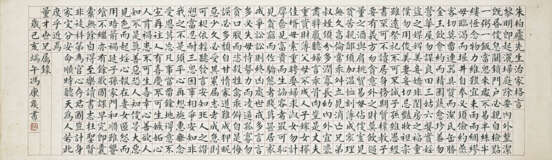 朱柏廬先生治家格言
黎明即起灑掃庭除要內外整潔
既昏便息關鎖門戶必親自檢點
一粥一飯當思來處不易半絲半
縷恆念物力維艱宜未雨而綢繆
毋臨渴而掘井自奉必須儉約宴
客切莫留連器具質而潔瓦缶勝
金玉飲食約而精園蔬愈珍饈勿
營華屋勿謀良田三姑六婆實淫
盜之媒婢美妾嬌非閨房之福童
僕勿用俊美妻妾切忌艷妝祖宗
雖遠祭祀不可不誠子孫雖愚經
書不可不讀居身務期質樸教子
要有義方勿貪意外之財勿飲過
量之酒與肩挑貿易毋佔便宜見
窮苦親鄰須加溫恤刻薄成家理
無久享倫常乖舛立見消亡兄弟
叔姪須分多潤寡長幼內外宜法
肅辭嚴聽婦言乖骨肉豈是丈夫
重貲財薄父母不成人子嫁女擇
佳婿毋索重聘娶媳求淑女勿計
厚奩見富貴而生諂容者最可恥
遇貧窮而作驕態者賤莫甚居家
戒爭訟訟則終凶處世戒多言言
多必失勿恃勢力而凌逼孤寡毋
貪口腹而恣殺牲禽乖僻自是悔
誤必多頹惰自甘家道難成狎昵
惡少久必受其累屈志老成急則
可相依輕聽發言安知非人之譖
愬當忍耐三思因事相爭安知非
我之不是須平心再想施惠無念
受恩莫忘凡事當留餘地得意不
宜再往人有喜慶不可生妒忌心
人有禍患不可生喜幸心善欲人
見不是真善惡恐人知便是大惡
見色而起淫心報在妻女匿怨而
用暗箭禍延子孫家門和順雖饔
飧不繼亦有餘歡國課早完即囊
橐無餘自得至樂讀書志在聖賢
非徒科第為官心存君國豈計身
家守分安命順時聽天為人若此
庶乎近焉
量才世兄屬錄
歲己亥端午馮康侯書